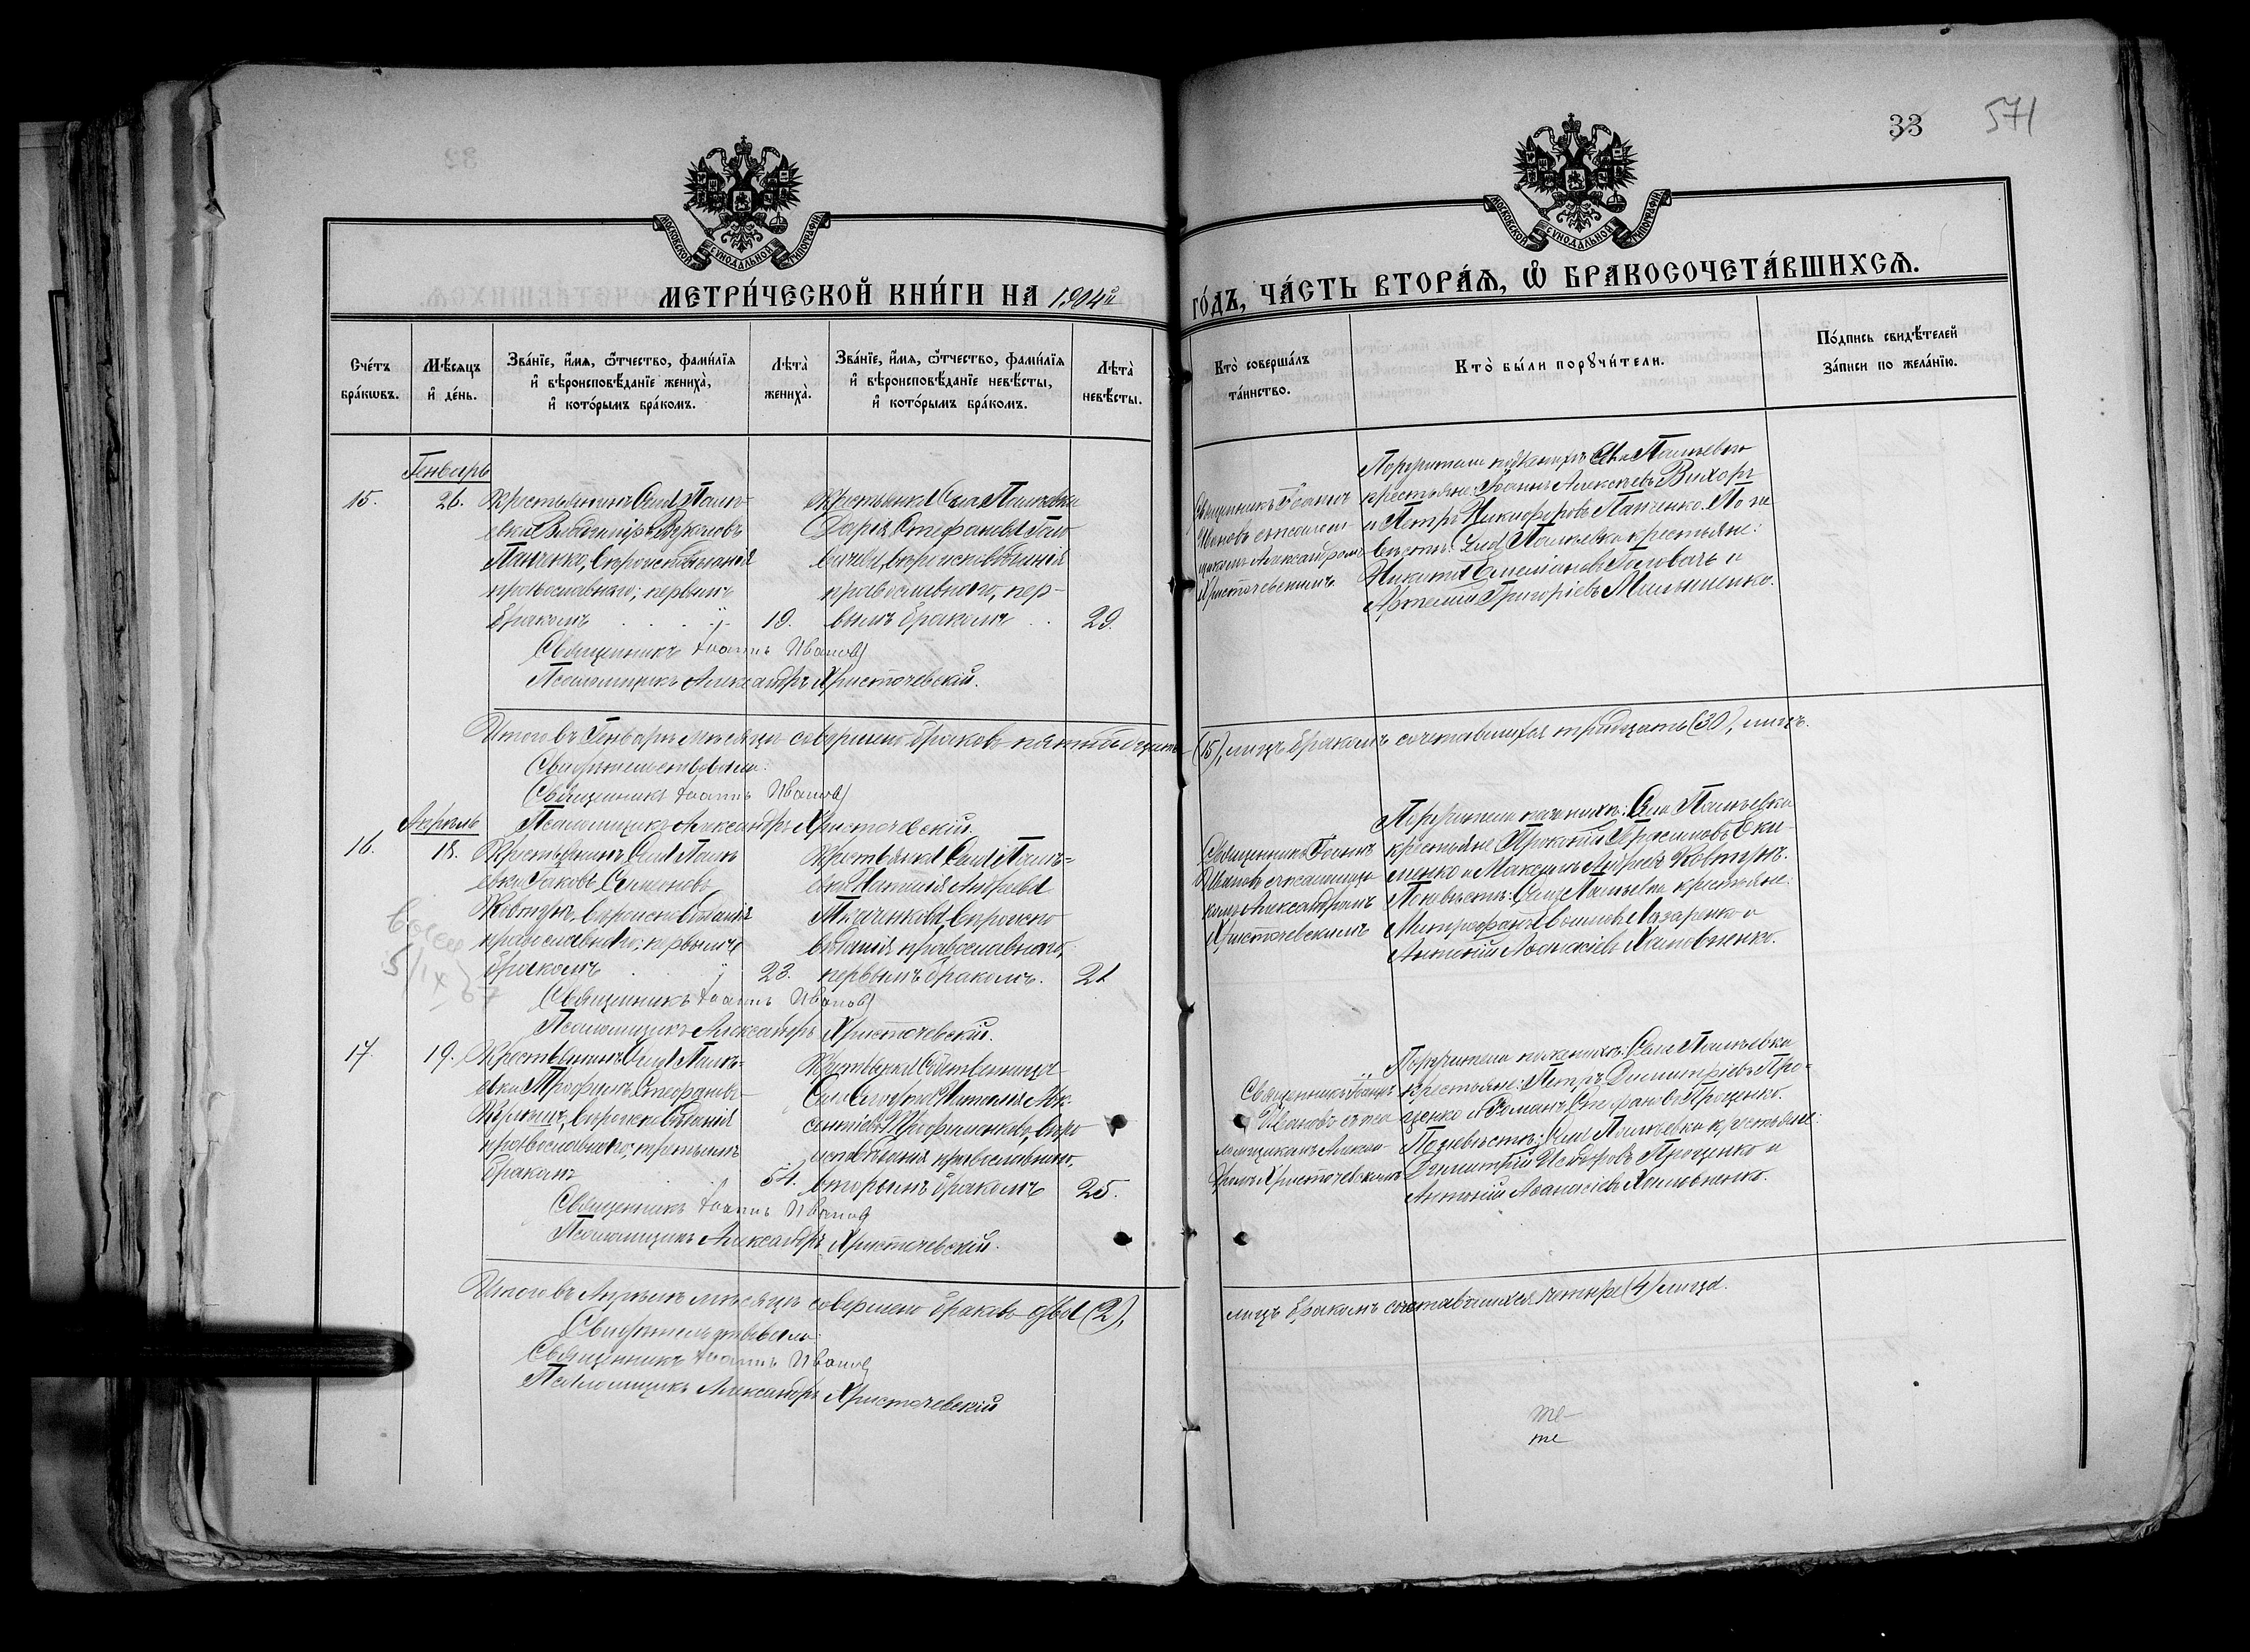 33
571
МОСКОВСКОЙ СѴНОДАЛЬНОЙ ТИПОГРАФІИ
МОСКОВСКОЙ СѴНОДАЛЬНОЙ ТИПОГРАФІИ
МЕТРИ́ЧЕСКОЙ КНИ́ГИ НА 1904й
ГО́ДЪ, ЧА́СТЬ ВТОРА́Ѧ, Ѽ БРАКОСОЧЕТА́ВШИХСѦ.
Сче́тъ бра́кѡвъ.
Мѣ́сѧцъ и҆ де́нь.
Зва́нїе, и҆́мѧ, ѻ҆́тчество, фами́лїѧ
и҆ вѣроисповѣ́данїе женихà,
и҆ кото́рымъ бра́комъ.
Лѣ́та̀ женихà.
Зва́нїе, и҆́мѧ, ѻ҆́тчество, фами́лїѧ
и҆ вѣроисповѣ́данїе невѣ́сты,
и҆ кото́рымъ бра́комъ.
Лѣ́та̀ невѣ́сты.
Кто̀ соверша́лъ
та́инство.
Кто̀ бы́ли порꙋчи́тели.
По́дпись свидѣ́телей
за́писи по жела́нїю.
Генварь
15.
26.
Крестьянинъ Села
Владиміръ
Панченко, вѣроисповѣданія
православнаго; первымъ
бракомъ
19.
Крестьянка Села
Дарія Стефанова
вѣроисповѣданія
православнаго, пер-
вымъ бракомъ
29.
Священникъ Іоаннъ
Ивановъ съ псалом
щикомъ Александромъ
Христочевскимъ
Поручители по женихѣ: Села
крестьяне: Іоаннъ Алексѣевъ Вихорь
и Петръ Никифоровъ Панченко. По не
вѣстѣ: Села крестьяне:
Никита Головачъ и
Артемій Григоріевъ
Священникъ Іоаннъ Ивановъ
Псаломщикъ Александръ Христочевскій.
Итого въ Генварѣ мѣсяцѣ совершено браковъ пятнадцать (15), лицъ бракомъ сочетавшихся тридцать (30), лицъ.
Свидѣтельствовали:
Священникъ Іоаннъ Ивановъ
Псаломщикъ Александръ Христочевскій.
Апрѣль
16.
18.
Крестьянинъ Села
Іаковъ Симеоновъ
Ковтунъ, вѣроисповѣданія
православнаго; первымъ
бракомъ
23.
Крестьянка Села
Наталія Андреева
Ткаченкова, вѣроиспо
вѣданія православнаго,
первымъ бракомъ.
21
Священникъ Іоаннъ
Ивановъ съ псаломщи
комъ Александромъ
Христочевскимъ
Поручители по женихѣ: Села
крестьяне Прокопій Герасимовъ Еки-
менко и Максимъ Андреевъ Ковтунъ.
По невѣстѣ: Села крестьяне:
Митрофанъ Лазаренко и
Антоній Аѳанасіевъ
Священникъ Іоаннъ Ивановъ
Псаломщикъ Александръ Христочевскій.
17.
19.
Крестьянинъ Села
Трофимъ Стефановъ
вѣроисповѣданія
православнаго; третьимъ
бракомъ
54.
Крестьянка
православнаго,
вторымъ бракомъ
25.
Священникъ Іоаннъ
Ивановъ съ пса
ломщикомъ Алексан-
дромъ Христочевскимъ
Поручители по женихѣ: Села
крестьяне: Петръ Димитріевъ Про-
ценко и Романъ Стефановъ Проценко.
По невѣстѣ: Села крестьяне:
Димитрій Проценко и
Антоній Аѳанасіевъ
Священникъ Іоаннъ Ивановъ
Псаломщикъ Александръ Христочевскій.
Итого въ Апрѣлѣ мѣсяцѣ совершено браковъ два (2), лицъ бракомъ сочетавшихся четыре (4) лица.
Свидѣтельствовали:
Священникъ Іоаннъ Ивановъ
Псаломщикъ Александръ Христочевскій